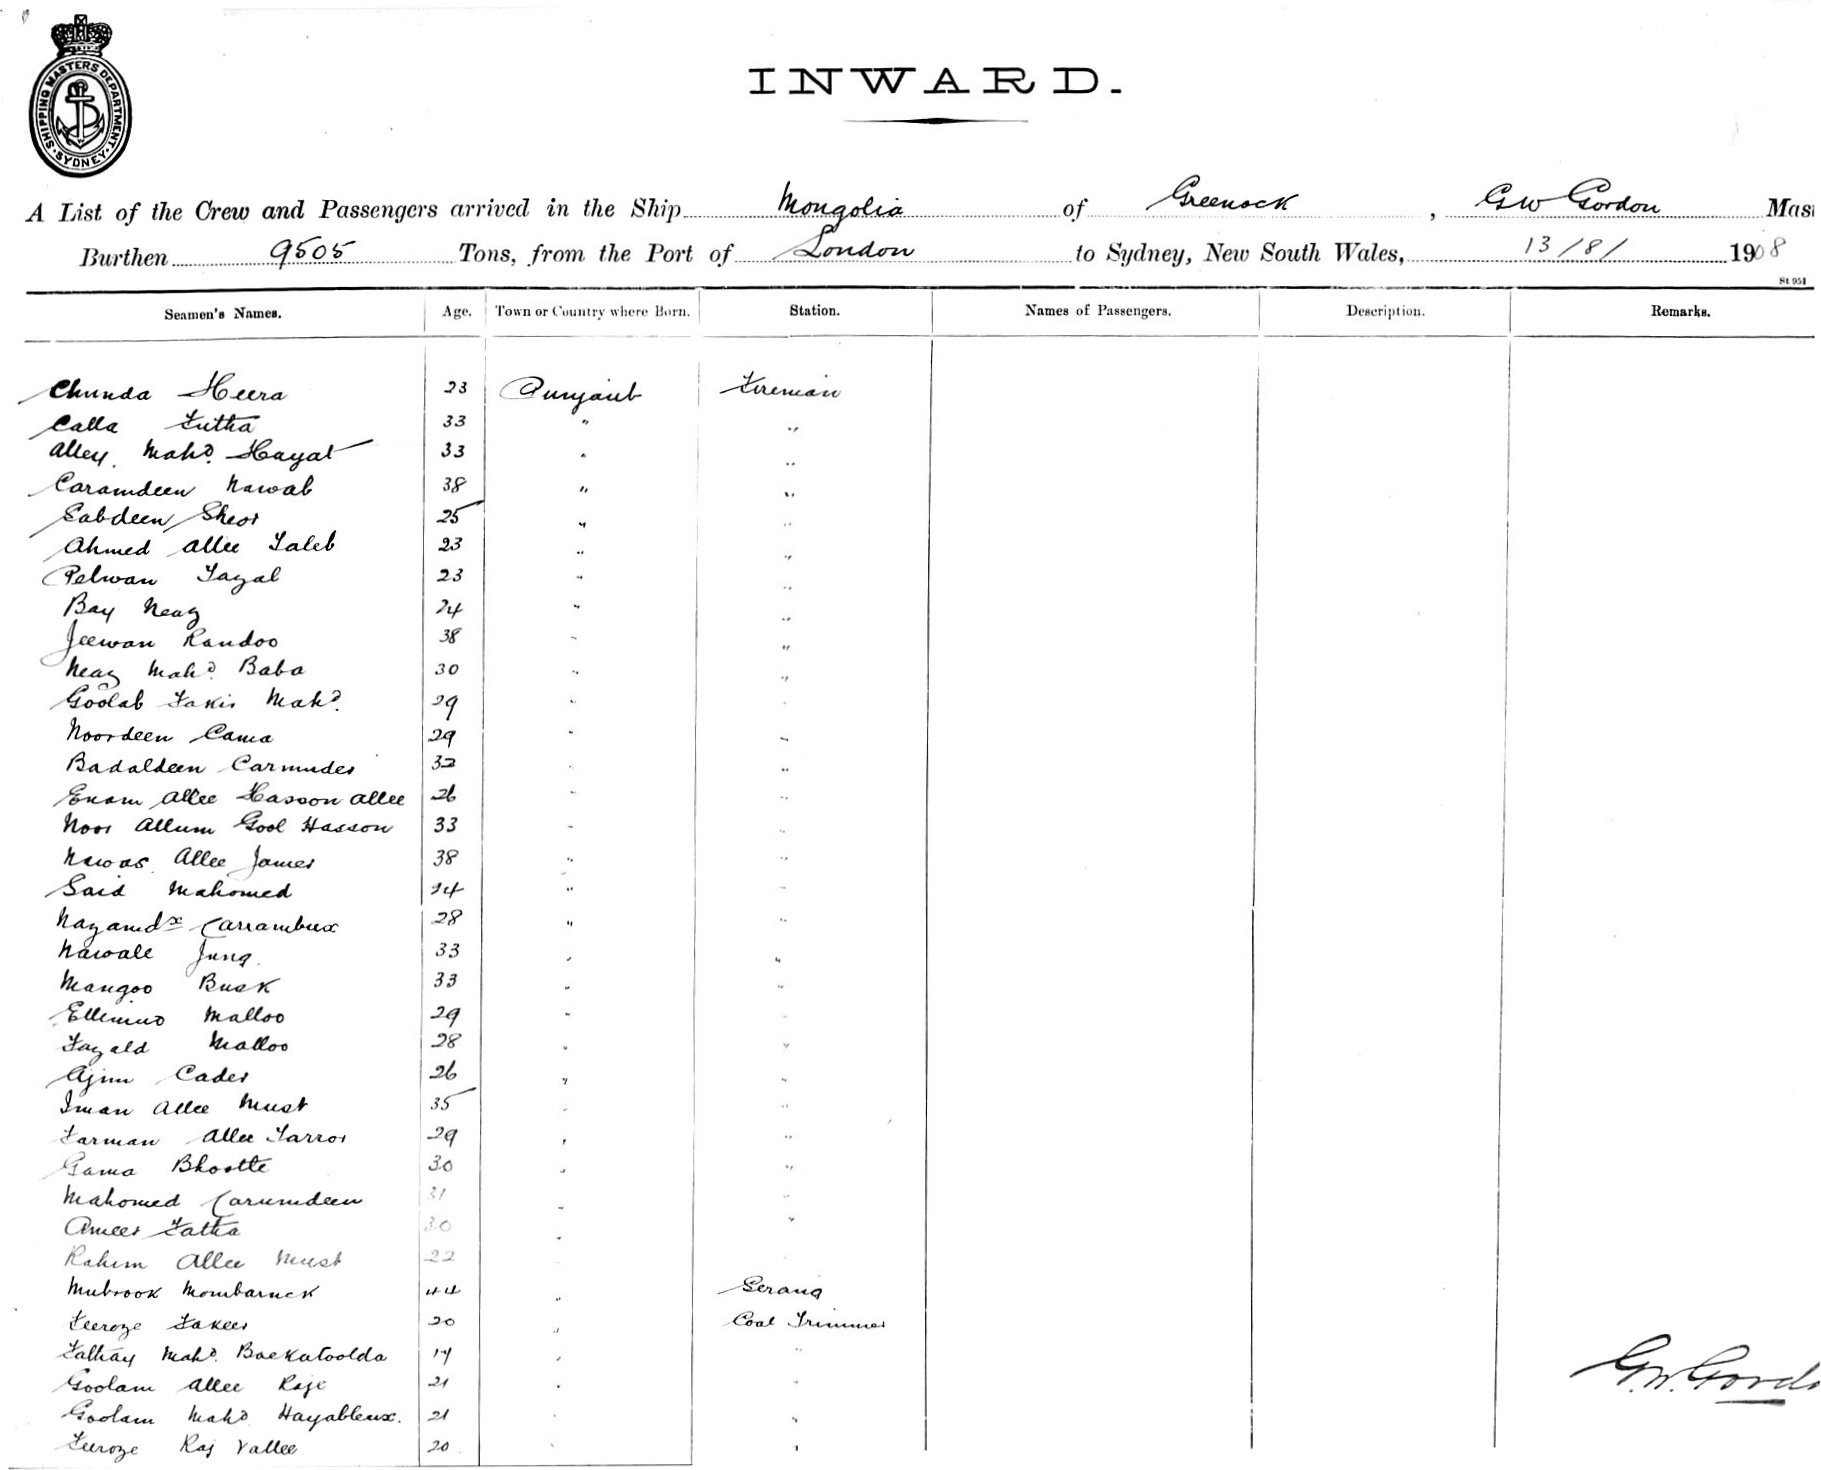 SHIPPING MASTERS DEPARTMENT. SYDNEY
INWARD.
A List of the Crew and Passengers arrived in the Ship Mongolia of Greenock, GW Gordon Mas
Burthen 9505 Tons, from the Port of London to Sydney, New South Wales, 13/8/ 1908
St 951
Seamen's Names. Age. Town or Country where Born. Station. Names of Passengers. Description. Remarks.
Chunda Heera 23 Punjaub Fireman
Calla Futha 33 " "
Alley Mahd. Hayat 33 " "
Caramdeen Nawab 38 " "
Sabdeen Sheor 25 " "
Ahmed Allee Taleb 23 " "
Pelwan Fazal 23 " "
Bay Neaz 24 " "
Jeewan Randoo 38 " "
Neaz Mahd. Baba 30 " "
Goolab Fakir Mahd. 29 " "
Noordeen Cama 29 " "
Badaldeen Carmudei 32 " "
Enam Allee Hasson Allee 26 " "
Noor Allum Gool Hasson 33 " "
Nawas Allee Jamer 38 " "
Said Mahomed 24 " "
Nazamdx Carrambux 28 " "
Nawale Jung 33 " "
Mangoo Busk 33 " "
Malloo 29 " "
Fazald Malloo 28 " "
Ajim Cader 26 " "
Iman Allee Must 35 " "
Farman Allee Farror 29 " "
Gama Bhootte 30 " "
Mahomed Carumdeen 31 " "
Ameer Fatha 30 " "
Rahim Allee Must 22
Mubrook Mombaruck 44 " Serang
Feeroze Fakeer 20 " Coal Trimmer
Mahd. Backatoolda 19 " "
Goolam Allee Raje 21 " "
Goolam Mahd. Hayableux. 21 " "
Feeroze Raj Vallee 20 " "
G.W. Gordo